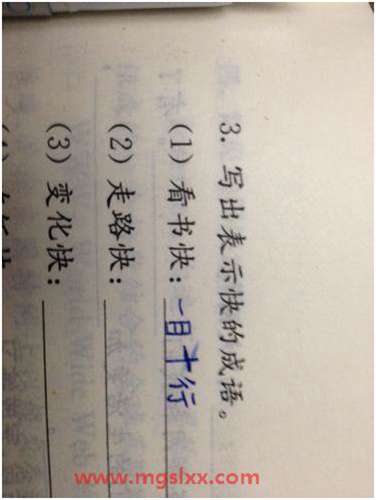 3. 写出表示快的成语。
(1) 看书快：一目十行
(2) 走路快：
(3) 变化快：
www.mgslxx.com